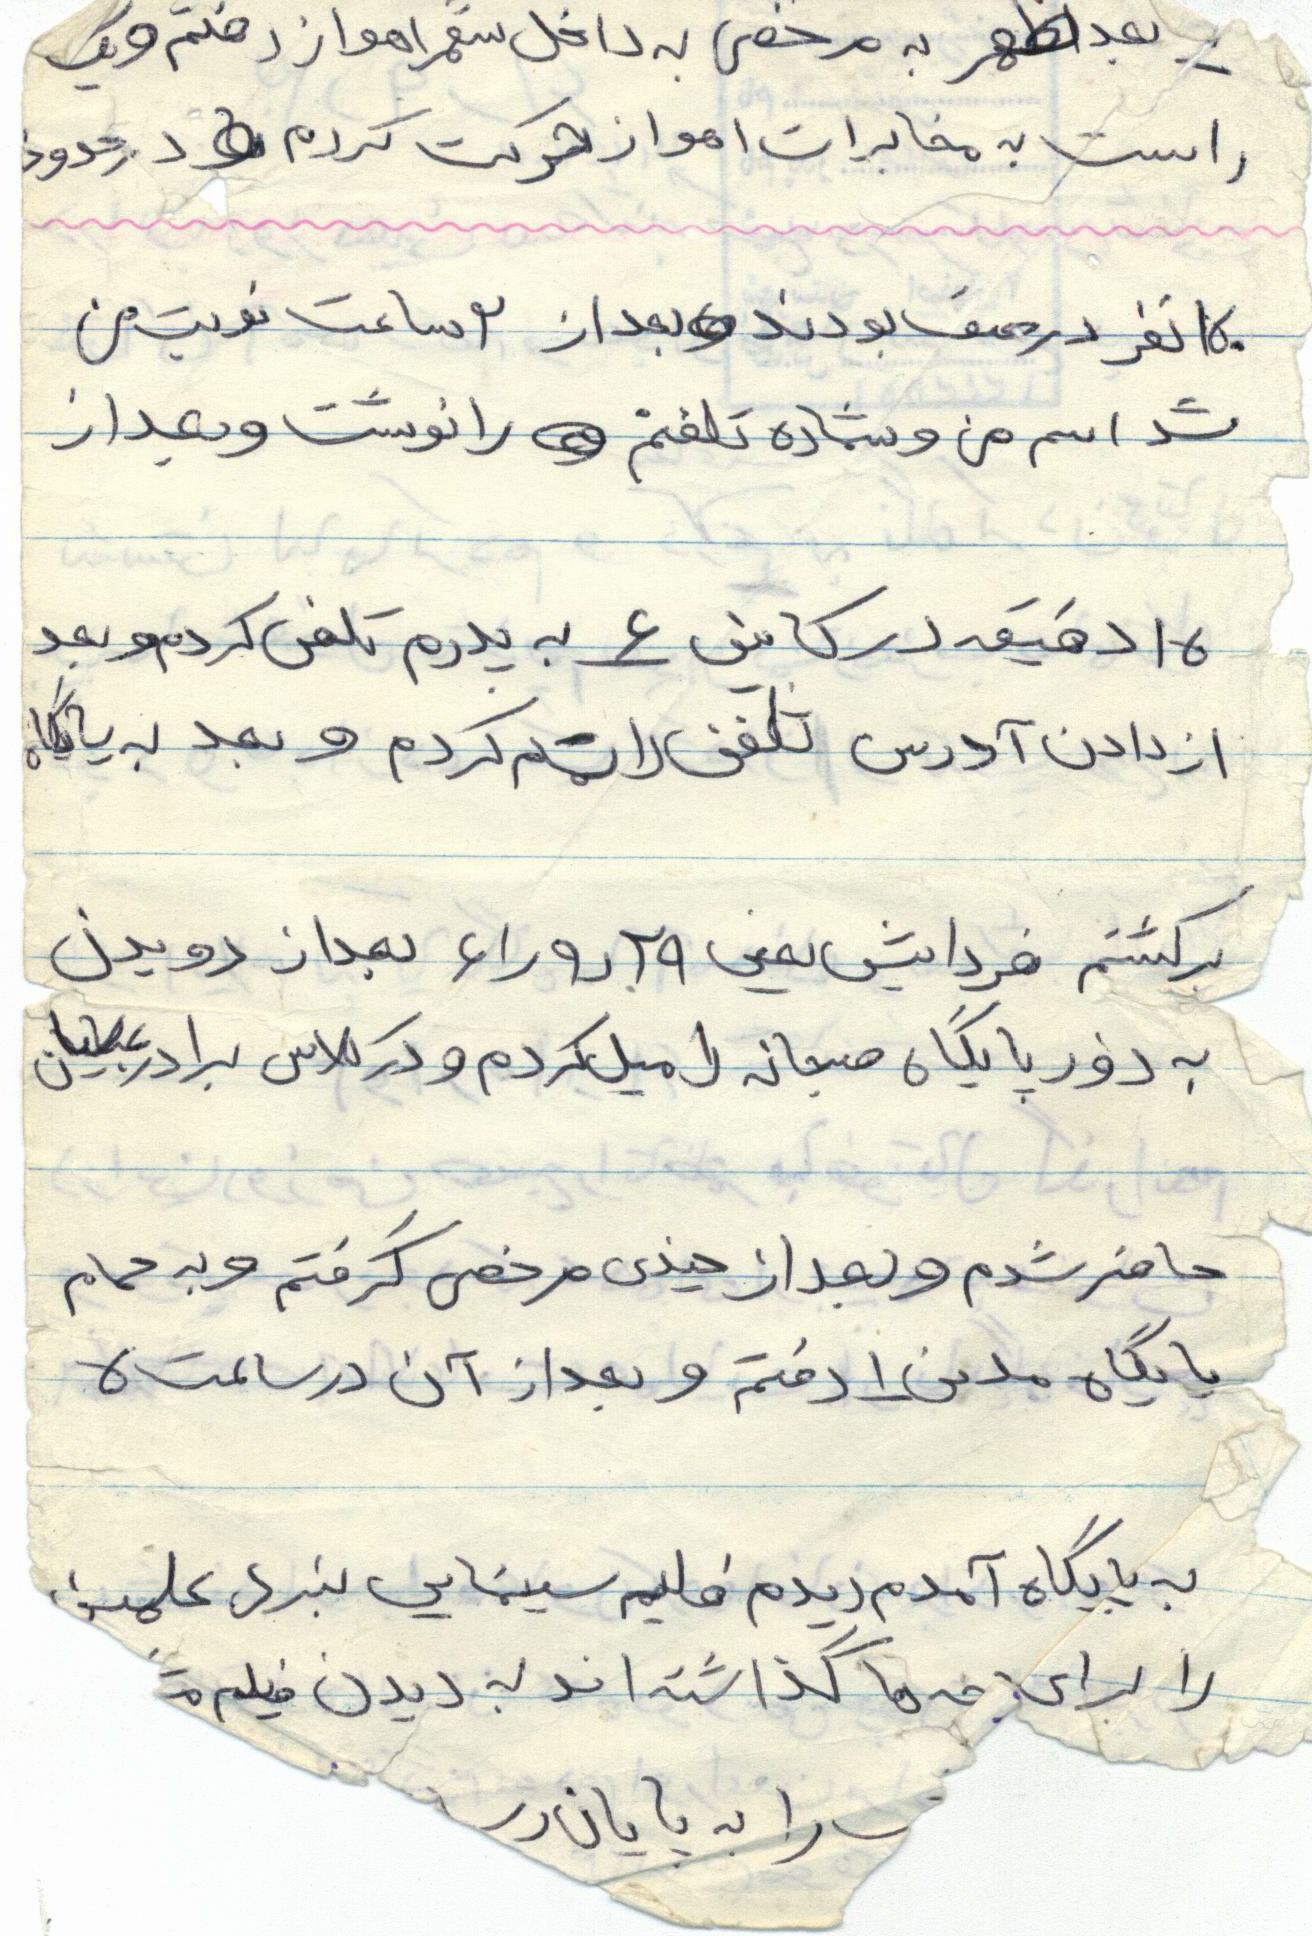 بعدازظهر به مرخصی به داخل شهر اهواز رفتم ویک
راست به مخابرات اهواز حرکت کردم در حدود
۱۵۰ نفر در صف بودند و بعد از ۲ ساعت نوبت من
شد اسم من و شماره تلفنم را نوشت و بعد از
۱۵ دقیقه در کابین ۶ به پدرم تلفن کردم و بعد
از دادن آدرس تلفن را تمام کردم و بعد به پایگاه
برگشتم فردایش یعنی ۲۹ر۹ر۶۱ بعد از دویدن
به دور پایگاه صبحانه را میل کردم و در کلاس برادر
حاضر شدم و بعد از چندی مرخصی گرفتم و به حمام
پایگاه مدنی ۱ رفتم و بعد از آن در ساعت ۵
به پایگاه آمدم دیدم فیلم سینمایی نبرد
را برای بچه ها گذاشته اند به دیدن فیلم
را به پایان